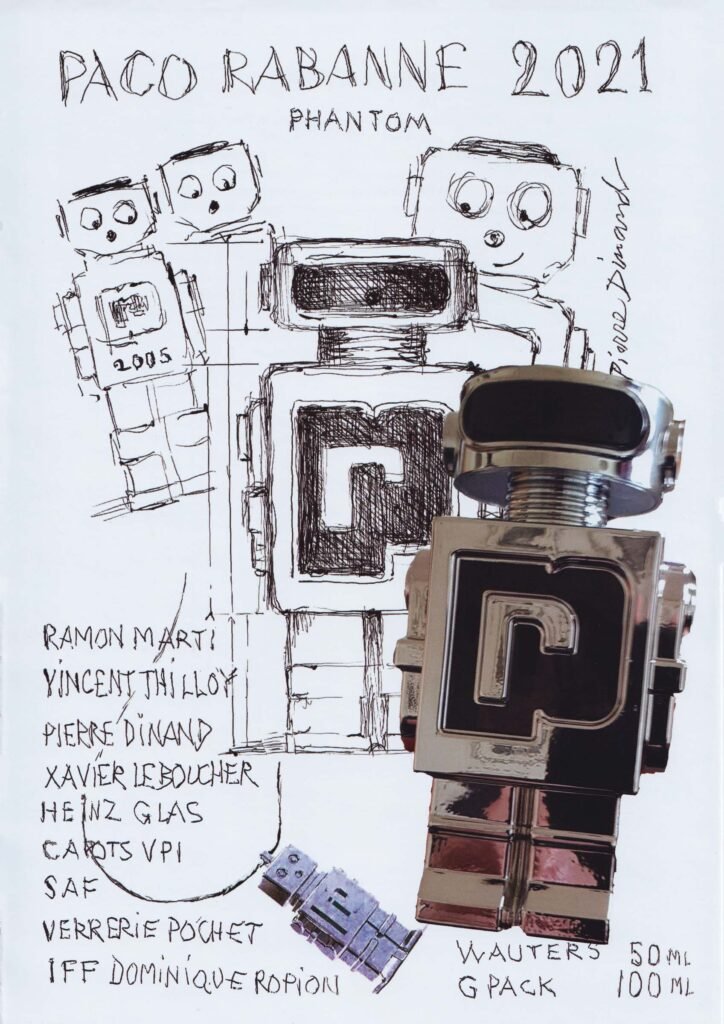 PACO RABANNE 2021
PHANTOM
Pierre Dinand
2005
RAMON MARTI
VINCENT THILLOY
PIERRE DINAND
XAVIER LEBOUCHER
HEINZ GLAS
CAPOTS VPI
SAF
VERRERIE POCHET
IFF DOMINIQUE ROPION
WAUTERS 50 ML
GPACK 100 ML